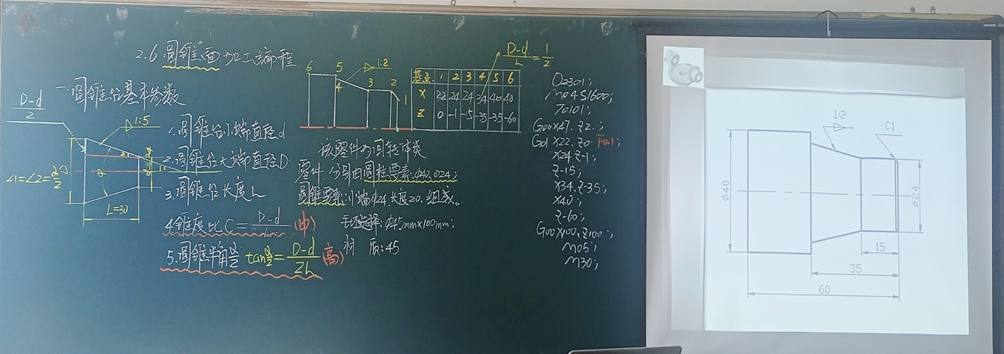 2.6 圆锥面加工编程
一.圆锥台基本参数
D-d
2
1:5
∠1=∠2=α/2
L=30
1.圆锥台小端直径d
2.圆锥台大端直径D
3.圆锥台长度L
4.锥度比C=D-d/L(中)
5.圆锥半角α/2 tanα/2=D-d/2L(高)
6 5 4 3 2 1
1:2
D-d/L=1/2
基点 1 2 3 4 5 6
X 22 24 24 34 40 40
Z 0 -1 -15 -35 -35 -60
该零件为回转体类
零件,分别由圆柱要素:φ40,φ24;
圆锥要素:小端φ24,长度20.组成。
毛坯选择:φ45mm×100mm;
材质:45
O2301;
M04S1600;
T0101;
G00X47.Z2.;
G01X22.Z0.F0.1;
X24.Z-1.;
Z-15.;
X34.Z-35.;
X40.;
Z-60.;
G00X100.Z100.;
M05;
M30;
1:2
C1
φ40
φ24
15
35
60